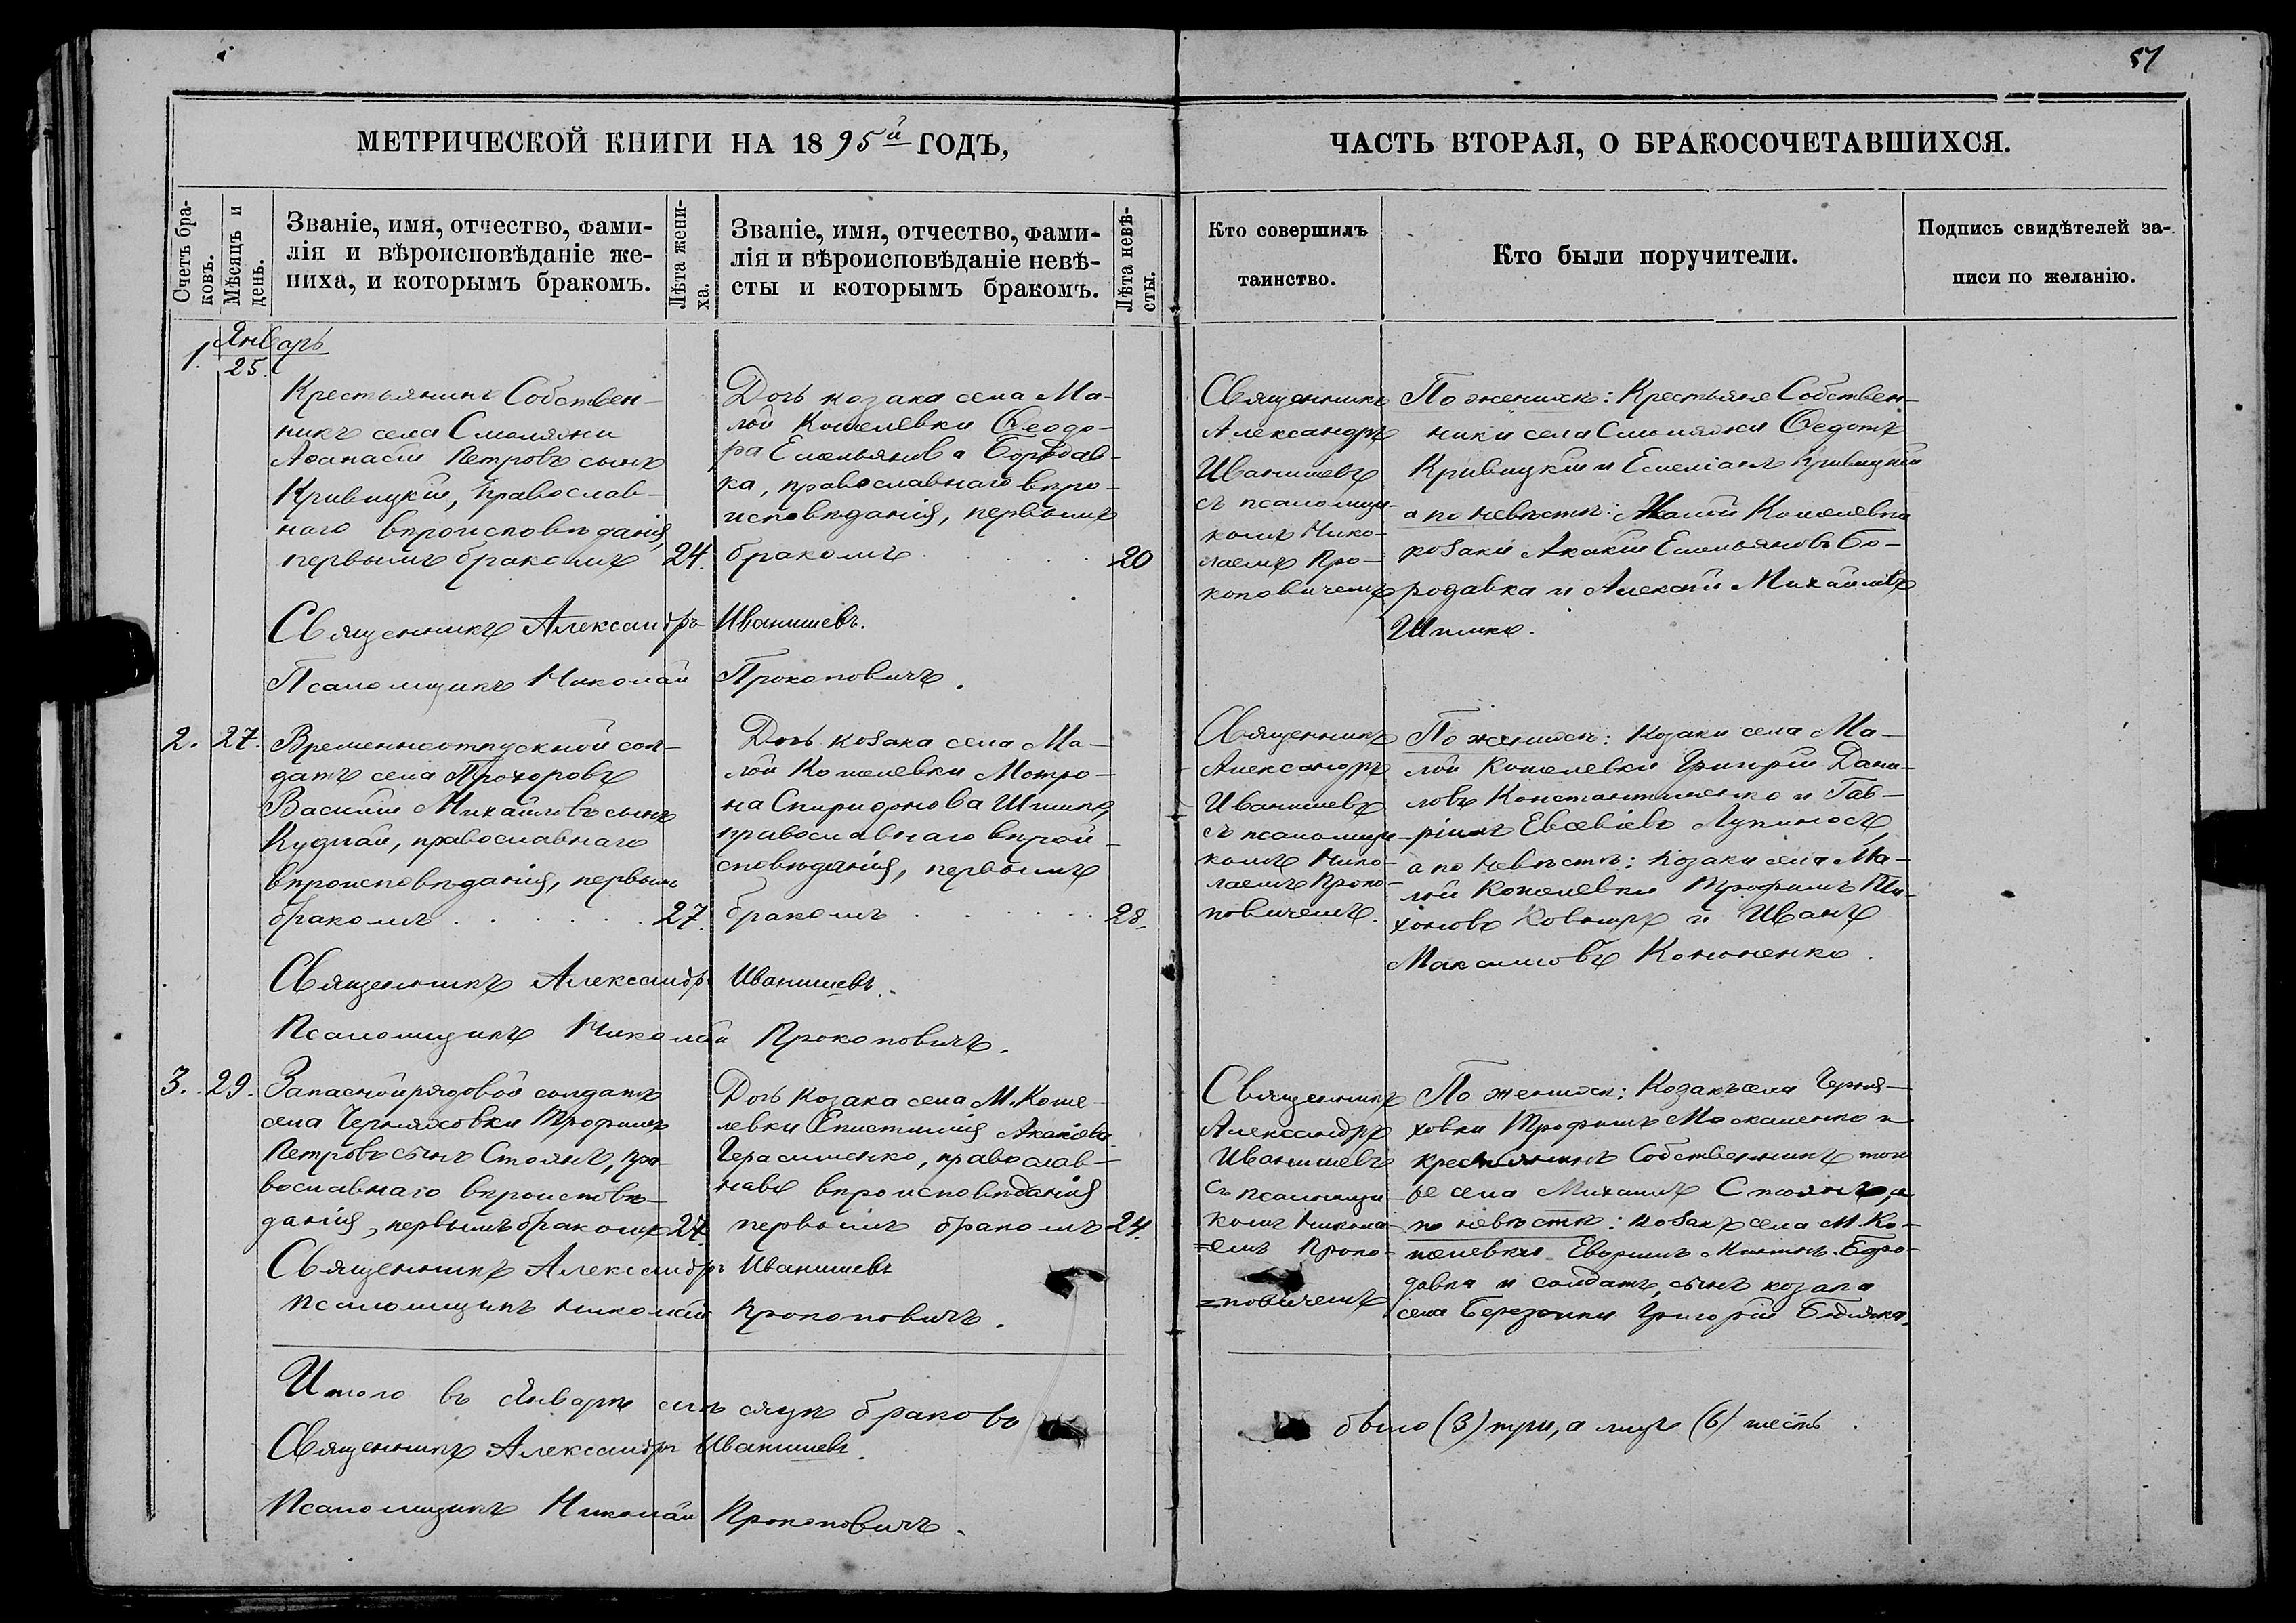 51
МЕТРИЧЕСКОЙ КНИГИ НА 1895й ГОДЪ,
ЧАСТЬ ВТОРАЯ, О БРАКОСОЧЕТАВШИХСЯ.
Счетъ бра-
ковъ.
Мѣсяцъ и
день.
Званіе, имя, отчество, фами-
лія и вѣроисповѣданіе же-
ниха, и которымъ бракомъ.
Лѣта жени-
ха.
Званіе, имя, отчество, фами-
лія и вѣроисповѣданіе невѣ-
сты и которымъ бракомъ.
Лѣта невѣ-
сты.
Кто совершилъ
таинство.
Кто были поручители.
Подпись свидѣтелей за-
писи по желанію.
1. Январь
25.
Крестьянинъ Собствен-
никъ села Смоляжи
Аѳанасій Петровъ сынъ
Кривицкій, православ-
наго вѣроисповѣданія,
первымъ бракомъ 24.
Дочь козака села Ма-
лой Кошелевки Ѳеодо-
ра Емельянова Бородав-
ка, православнаго вѣро-
исповѣданія, первымъ
бракомъ 20
Священникъ
Александръ
Иванишевъ
съ псаломщи-
комъ Нико-
лаемъ Про-
коповичемъ
По женихѣ: Крестьяне Собствен-
ники села Смоляжи Ѳедотъ
Кривицкій и Емеліанъ Кривицкій
а по невѣстѣ: Малой Кошелевки
козаки Акакій Емельяновъ Бо-
родавка и Алексѣй Михайловъ
Шпилько.
Священникъ Александръ Иванишевъ.
Псаломщикъ Николай Прокоповичъ.
2. 27. Временноотпускной сол-
датъ села Прохоровъ
Василій Михайловъ сынъ
Кудлай, православнаго
вѣроисповѣданія, первымъ
бракомъ 27.
Дочь козака села Ма-
лой Кошелевки Мотро-
на Спиридонова Шпилько,
православнаго вѣрои-
сповѣданія, первымъ
бракомъ 28.
Священникъ
Александръ
Иванишевъ
съ псаломщи-
комъ Нико-
лаемъ Проко-
повичемъ.
По женихѣ: Козаки села Ма-
лой Кошелевки Григорій Дани-
ловъ Константиненко и Гав-
ріилъ Евсевіевъ Лупиносъ,
а по невѣстѣ: Козаки села Ма-
лой Кошелевки Трофимъ Ти-
хоновъ Ковниръ и Иванъ
Максимовъ Кононенко.
Священникъ Александръ Иванишевъ.
Псаломщикъ Николай Прокоповичъ.
3. 29. Запасной рядовой солдатъ
села Черняховки Трофимъ
Петровъ сынъ Стоянъ, пра-
вославнаго вѣроисповѣ-
данія, первымъ бракомъ 27.
Дочь Козака села М. Коше-
левки Епистимія Акакіева
Герасименко, православ-
наго вѣроисповѣданія
первымъ бракомъ 24.
Священникъ
Александръ
Иванишевъ
съ псаломщи-
комъ Никола-
=емъ Проко-
=повичемъ
По женихѣ: Козакъ села Черня-
ховки Трофимъ Москаленко и
крестьянинъ Собственникъ того
же села Михаилъ Стоянъ, а
по невѣстѣ: козакъ села М. Ко-
шелевки Бора-
давка и солдатъ, сынъ козака
села Березанки Григорій
Священникъ Александръ Иванишевъ
Псаломщикъ Николай Прокоповичъ.
Итого въ Январѣ мѣсяцѣ браковъ было (3) три, а лицъ (6) шесть.
Священникъ Александръ Иванишевъ.
Псаломщикъ Николай Прокоповичъ.